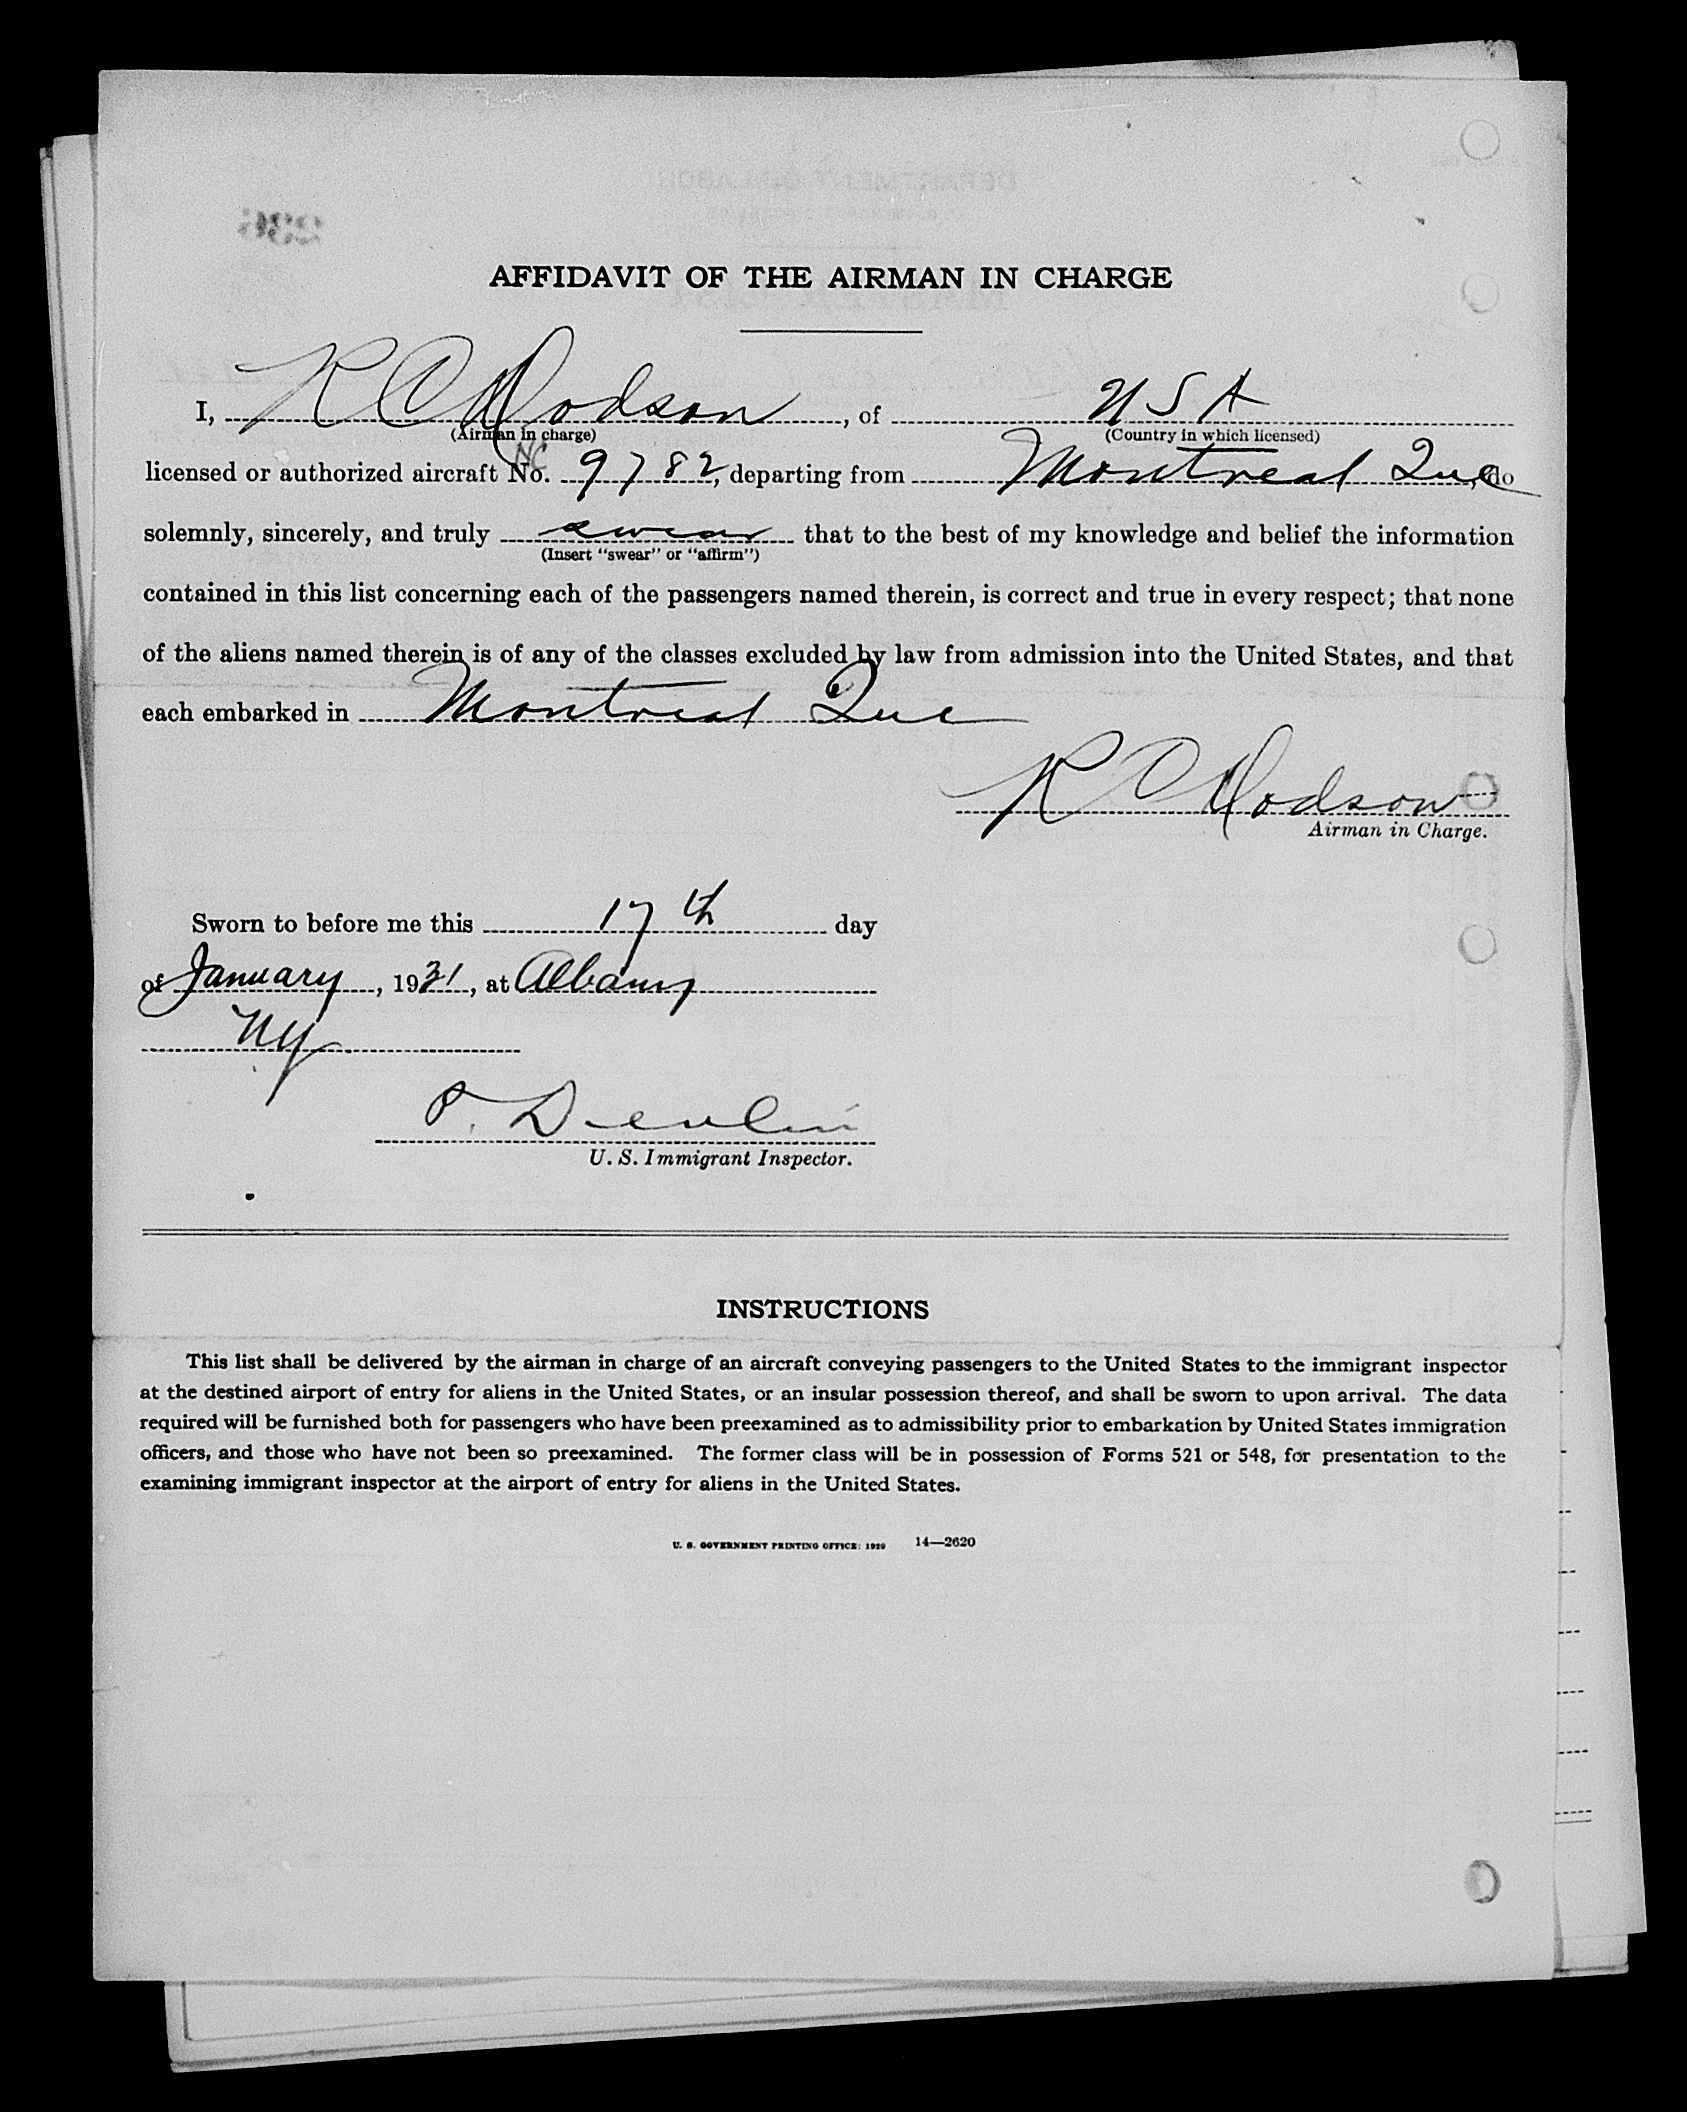 AFFIDAVIT OF THE AIRMAN IN CHARGE
I, R C Dodson, of USA
(Airman in charge) (Country in which licensed)
licensed or authorized aircraft No. NC 9782, departing from Montreal Que, do
solemnly, sincerely, and truly swear that to the best of my knowledge and belief the information
(Insert "swear" or "affirm")
contained in this list concerning each of the passengers named therein, is correct and true in every respect; that none
of the aliens named therein is of any of the classes excluded by law from admission into the United States, and that
each embarked in Montreal Que
R C Dodson
Airman in Charge.
Sworn to before me this 17th day
of January, 1931, at Albany
NY
P. Devlin
U. S. Immigrant Inspector.
INSTRUCTIONS
This list shall be delivered by the airman in charge of an aircraft conveying passengers to the United States to the immigrant inspector
at the destined airport of entry for aliens in the United States, or an insular possession thereof, and shall be sworn to upon arrival. The data
required will be furnished both for passengers who have been preexamined as to admissibility prior to embarkation by United States immigration
officers, and those who have not been so preexamined. The former class will be in possession of Forms 521 or 548, for presentation to the
examining immigrant inspector at the airport of entry for aliens in the United States.
U. S. GOVERNMENT PRINTING OFFICE: 1929 14—2620